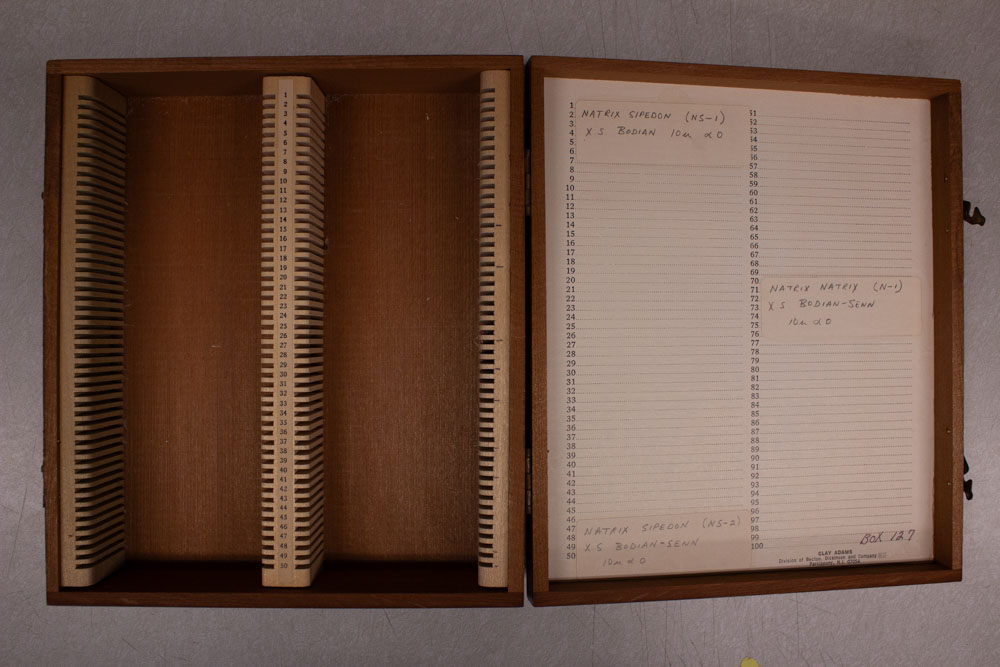 1
2
3
4
5
6
7
8
9
10
11
12
13
14
15
16
17
18
19
20
21
22
23
24
25
26
27
28
29
30
31
32
33
34
35
36
37
38
39
40
41
42
43
44
45
46
47
48
49
1
2
3
4
5
6
7
8
9
10
11
12
13
14
15
16
17
18
19
20
21
22
23
24
25
26
27
28
29
30
31
32
33
34
35
36
37
38
39
40
41
42
43
44
45
46
47
48
49
50
NATRIX SIPEDON (NS-1)
XS BODIAN 10u αO
NATRIX SIPEDON (NS-2)
XS BODIAN-SENN
10u αO
51
52
53
54
55
56
57
58
59
60
61
62
63
64
65
66
67
68
69
70
71
72
73
74
75
76
77
78
79
80
81
82
83
84
85
86
87
88
89
90
91
92
93
94
95
96
97
98
99
100
NATRIX NATRIX (N-1)
XS BODIAN-SENN
10u αO
BOX 127
CLAY ADAMS
Division of Becton, Dickinson and Company
Parsippany, N.J.